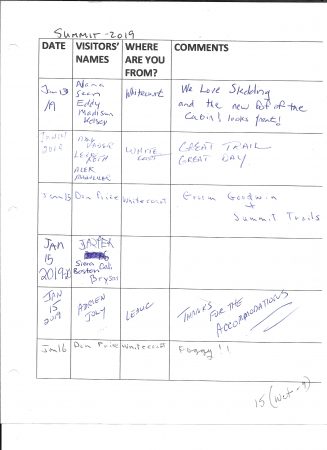 SUMMIT - 2019
DATE VISITORS' NAMES WHERE ARE YOU FROM? COMMENTS
Jan 13 /19
Sean
Eddy
Madison
Kelsey
Whitecourt
We Love Sledding
and the new roof of the
Cabin! looks great!
2019
KEITH
ALEX
WHITE COURT
GREAT TRAIL
GREAT DAY
Jan 15 Don Price Whitecourt
Groom Goodwin
+
Summit Trails
JAN
15
2019
BAXTER
Siera Cole
Boston
Bryson
JAN
15
2019
ADRIEN
JOLY
LEDUC
THANKS FOR THE
ACCOMMODATIONS
Jan 16 Don Price Whitecourt Foggy !!
15